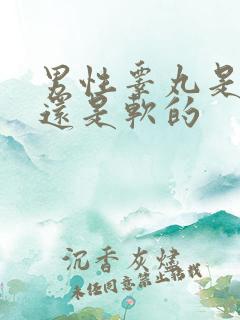 男性睾丸是
還是軟的
沉香灰燼
未经同意禁止转载